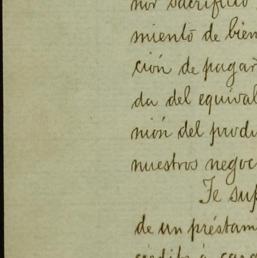 nor sacrificio
miento de bien
ción de pagar
da del equival
nión del produ
nuestros negoc
Te sup
de un préstam
crédito á carg